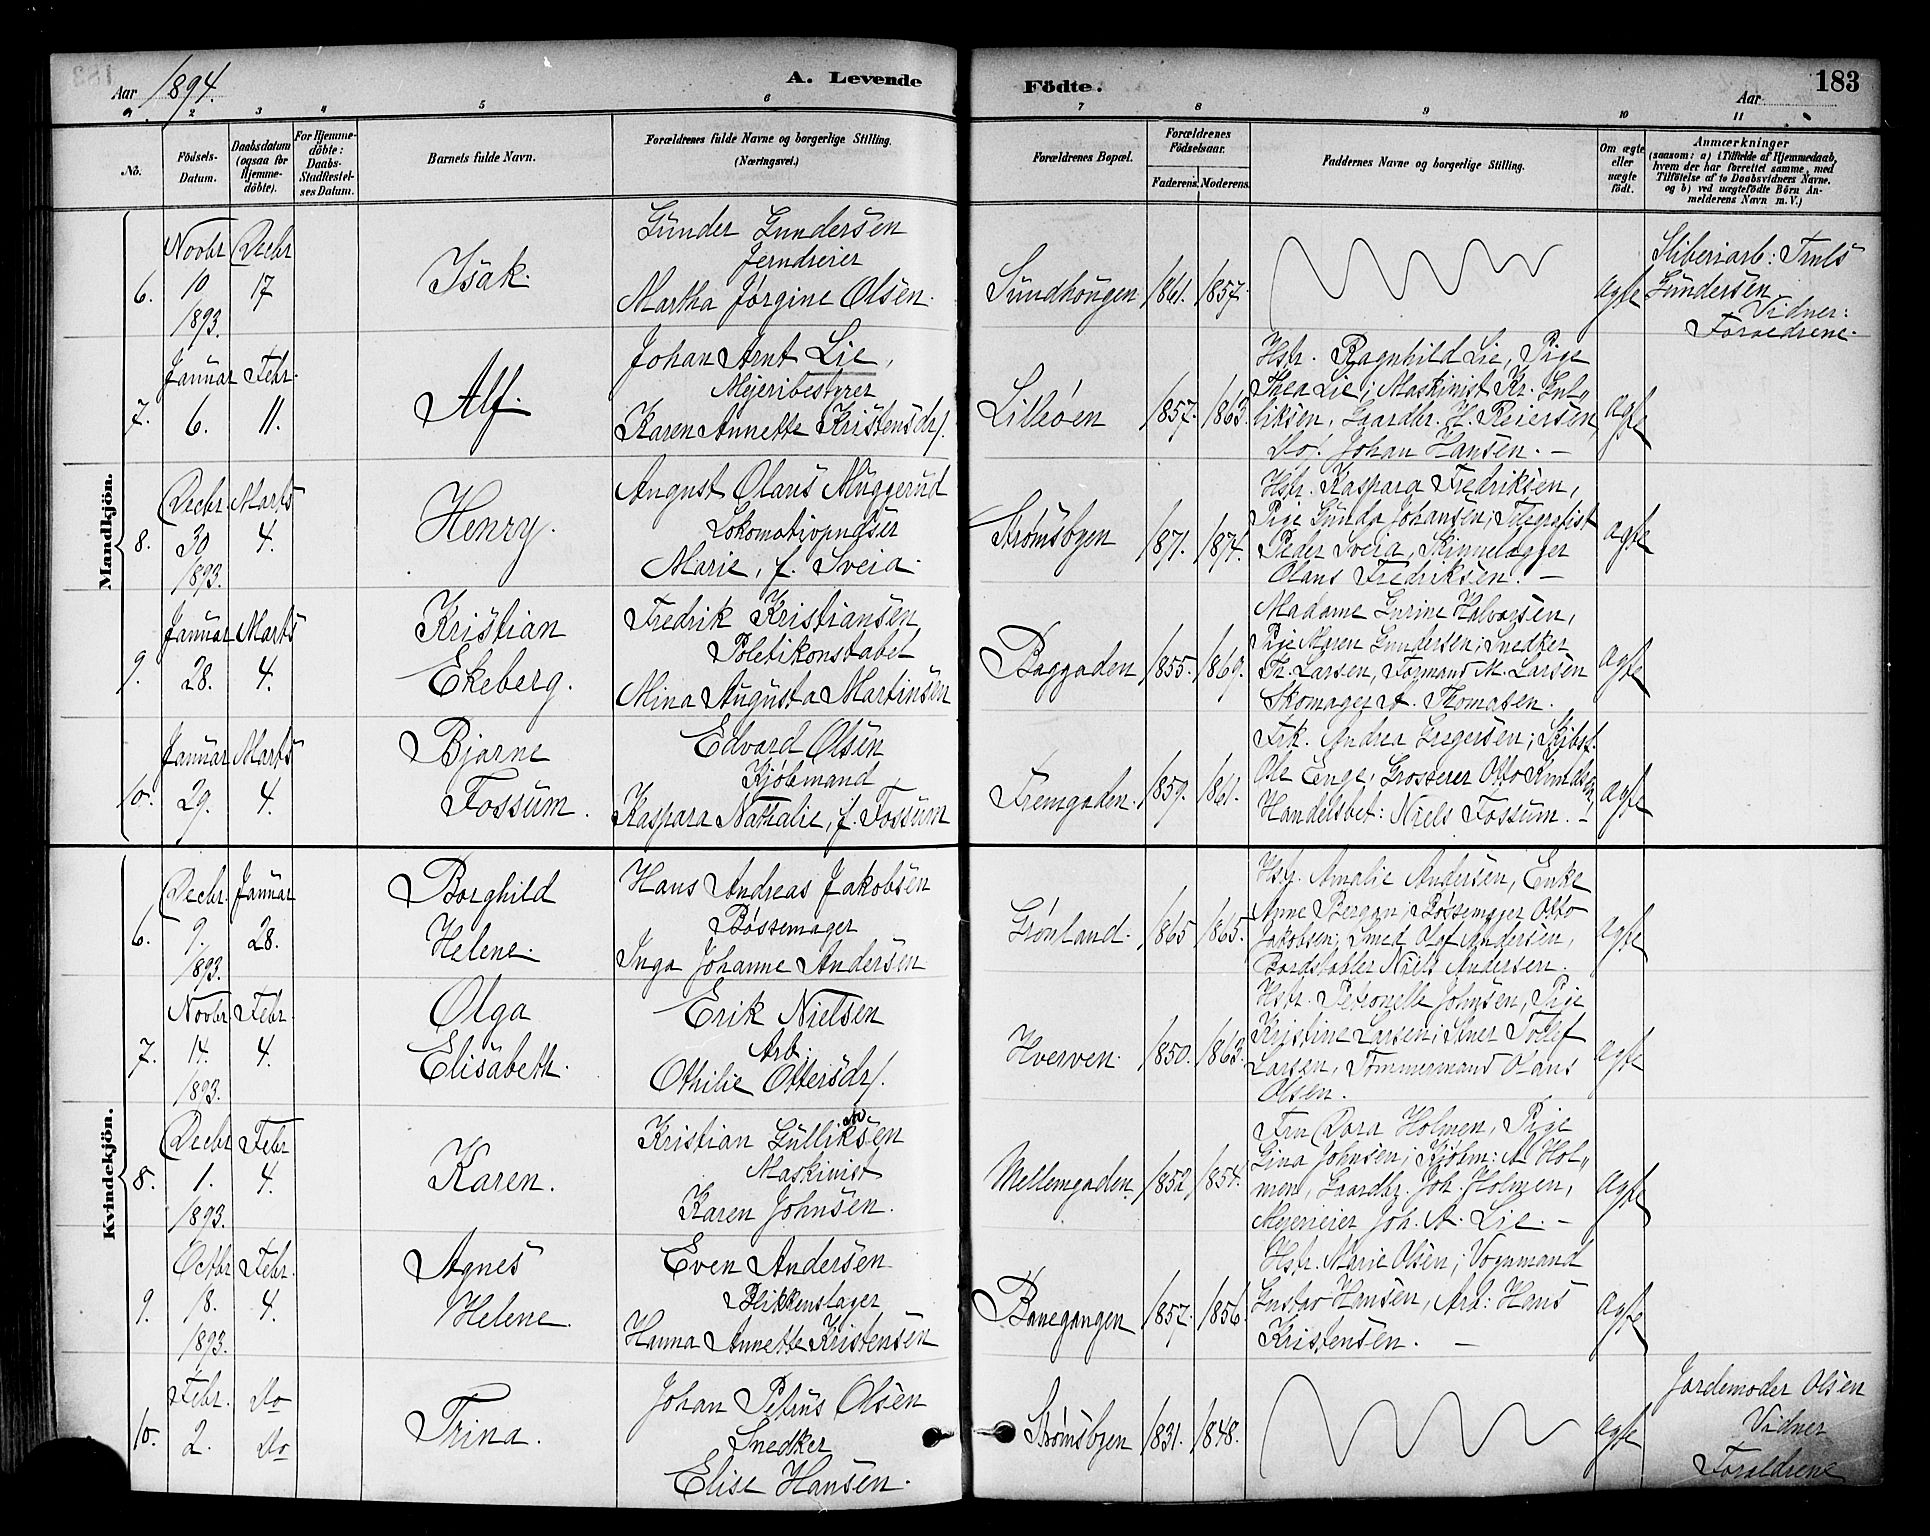 Aar 1894.
A. Levende
Födte.
Aar
183
1 2 3 4 5 6 7 8 9 10 11
No.
Födsels-Datum.
Daabsdatum (ogsaa for Hjemme-döbte).
For Hjemme-döbte: Daabs-Stadfæstelses Datum.
Barnets fulde Navn.
Forældrenes fulde Navne og borgerlige Stilling.
(Næringsvei.)
Forældrenes Bopæl.
Forældrenes Födselsaar.
Faderens. Moderens.
Faddernes Navne og borgerlige Stilling.
Om ægte eller uægte födt.
Anmærkninger
(saasom: a) i Tilfælde af Hjemmedaab, hvem der har forrettet samme, med Tilföielse af to Daabsvidners Navne, og b) ved uægtefödte Börn Anmelderens Navn m. V.)
Mandkjön.
6.
Novbr 10 1893.
Decbr 17
Isak.
Gunder Gundersen
Jerndreier
Martha Jørgine Olsen.
Sundhougen
1861. 1857.
ægte
Sliberiarb: Truls
Gundersen
Vidner:
Forældrene.
7.
Januar 6.
Febr. 11.
Alf.
Johan Arnt Lie,
Mejeribestyrer
Karen Annette Kristensdr.
Lilleöen
1857. 1863.
Hstr. Ragnhild Lie, Pige
Thea Lie; Maskinist Kr. Gul-
liksen, Gaardbr. H. Reiersen,
Do. Johan Hansen. —
ægte
8.
Decbr. 30 1893.
Marts 4.
Henry.
August Olaus Muggerud
Lokomotivpudser
Marie, f. Sveia.
Strømsbyen
1871. 1874.
Hstr. Kaspara Fredriksen,
Pige Gunda Johansen; Telegrafist
Peder Sveia, Skinnelægger
Olaus Fredriksen. —
ægte
9.
Januar 28.
Marts 4.
Kristian
Ekeberg.
Fredrik Kristiansen
Politikonstabel
Mina Augusta Martinsen
Baggaden
1855. 1869.
Madame Gurine Halvorsen,
Pige Maren Gundersen; Snedker
Th. Larsen, Formand M. Larsen
Skomager A. Thomasen.
ægte
10.
Januar 29.
Marts 4.
Bjarne
Fossum.
Edvard Olsen
Kjøbmand
Kaspara Nathalie, f. Fossum
Fremgaden.
1859. 1861.
Frk. Andrea Gregersen; Skibsf.
Ole Enge, Grosserer Otto Knudsen,
Handelsbet: Niels Fossum. —
ægte
Kvindekjön.
6.
Decbr. 9. 1893.
Januar 28.
Borghild
Helene.
Hans Andreas Jakobsen
Bøssemager
Inga Johanne Andersen
Grønland.
1865 1865.
Hstr. Amalie Andersen, Enke
Anne Bergan; Bøssemager Otto
Jakobsen, Smed Olaf Andersen,
Bordstabler Niels Andersen.
ægte
7.
Novbr 14. 1893.
Febr. 4.
Olga
Elisabeth.
Erik Nielsen
Arb.
Othilie Ottersdr.
Hverven.
1850. 1863.
Hstr. Petronelle Johnsen, Pige
Kristine Larsen; Tollef
Larsen, Tømmermand Olaus
Olsen.
ægte
8.
Decbr 1. 1893.
Febr 4.
Karen.
Kristian Gulliksen
Maskinist
Karen Johnsen.
Mellemgaden,
1852, 1854.
Fru Dora Holmen, Pige
Gina Johnsen; Kjøbm: A. Hol-
men, Gaardbr. Joh. Holmen,
Mejerieier Joh. A. Lie. —
ægte
9.
Octbr 18. 1893.
Febr. 4.
Agnes
Helene.
Even Andersen
Blikkenslager
Hanna Annette Kristensen
Banegangen
1857. 1856.
Hstr. Marie Olsen; Vognmand
Gustav Hansen, Arb: Hans
Kristensen. —
ægte
10.
Febr. 2.
Do Do
Trina.
Johan Petrus Olsen
Snedker
Elise Hansen.
Strømsbyen
1831. 1848.
ægte
Jordemoder Olsen
Vidner
Forældrene